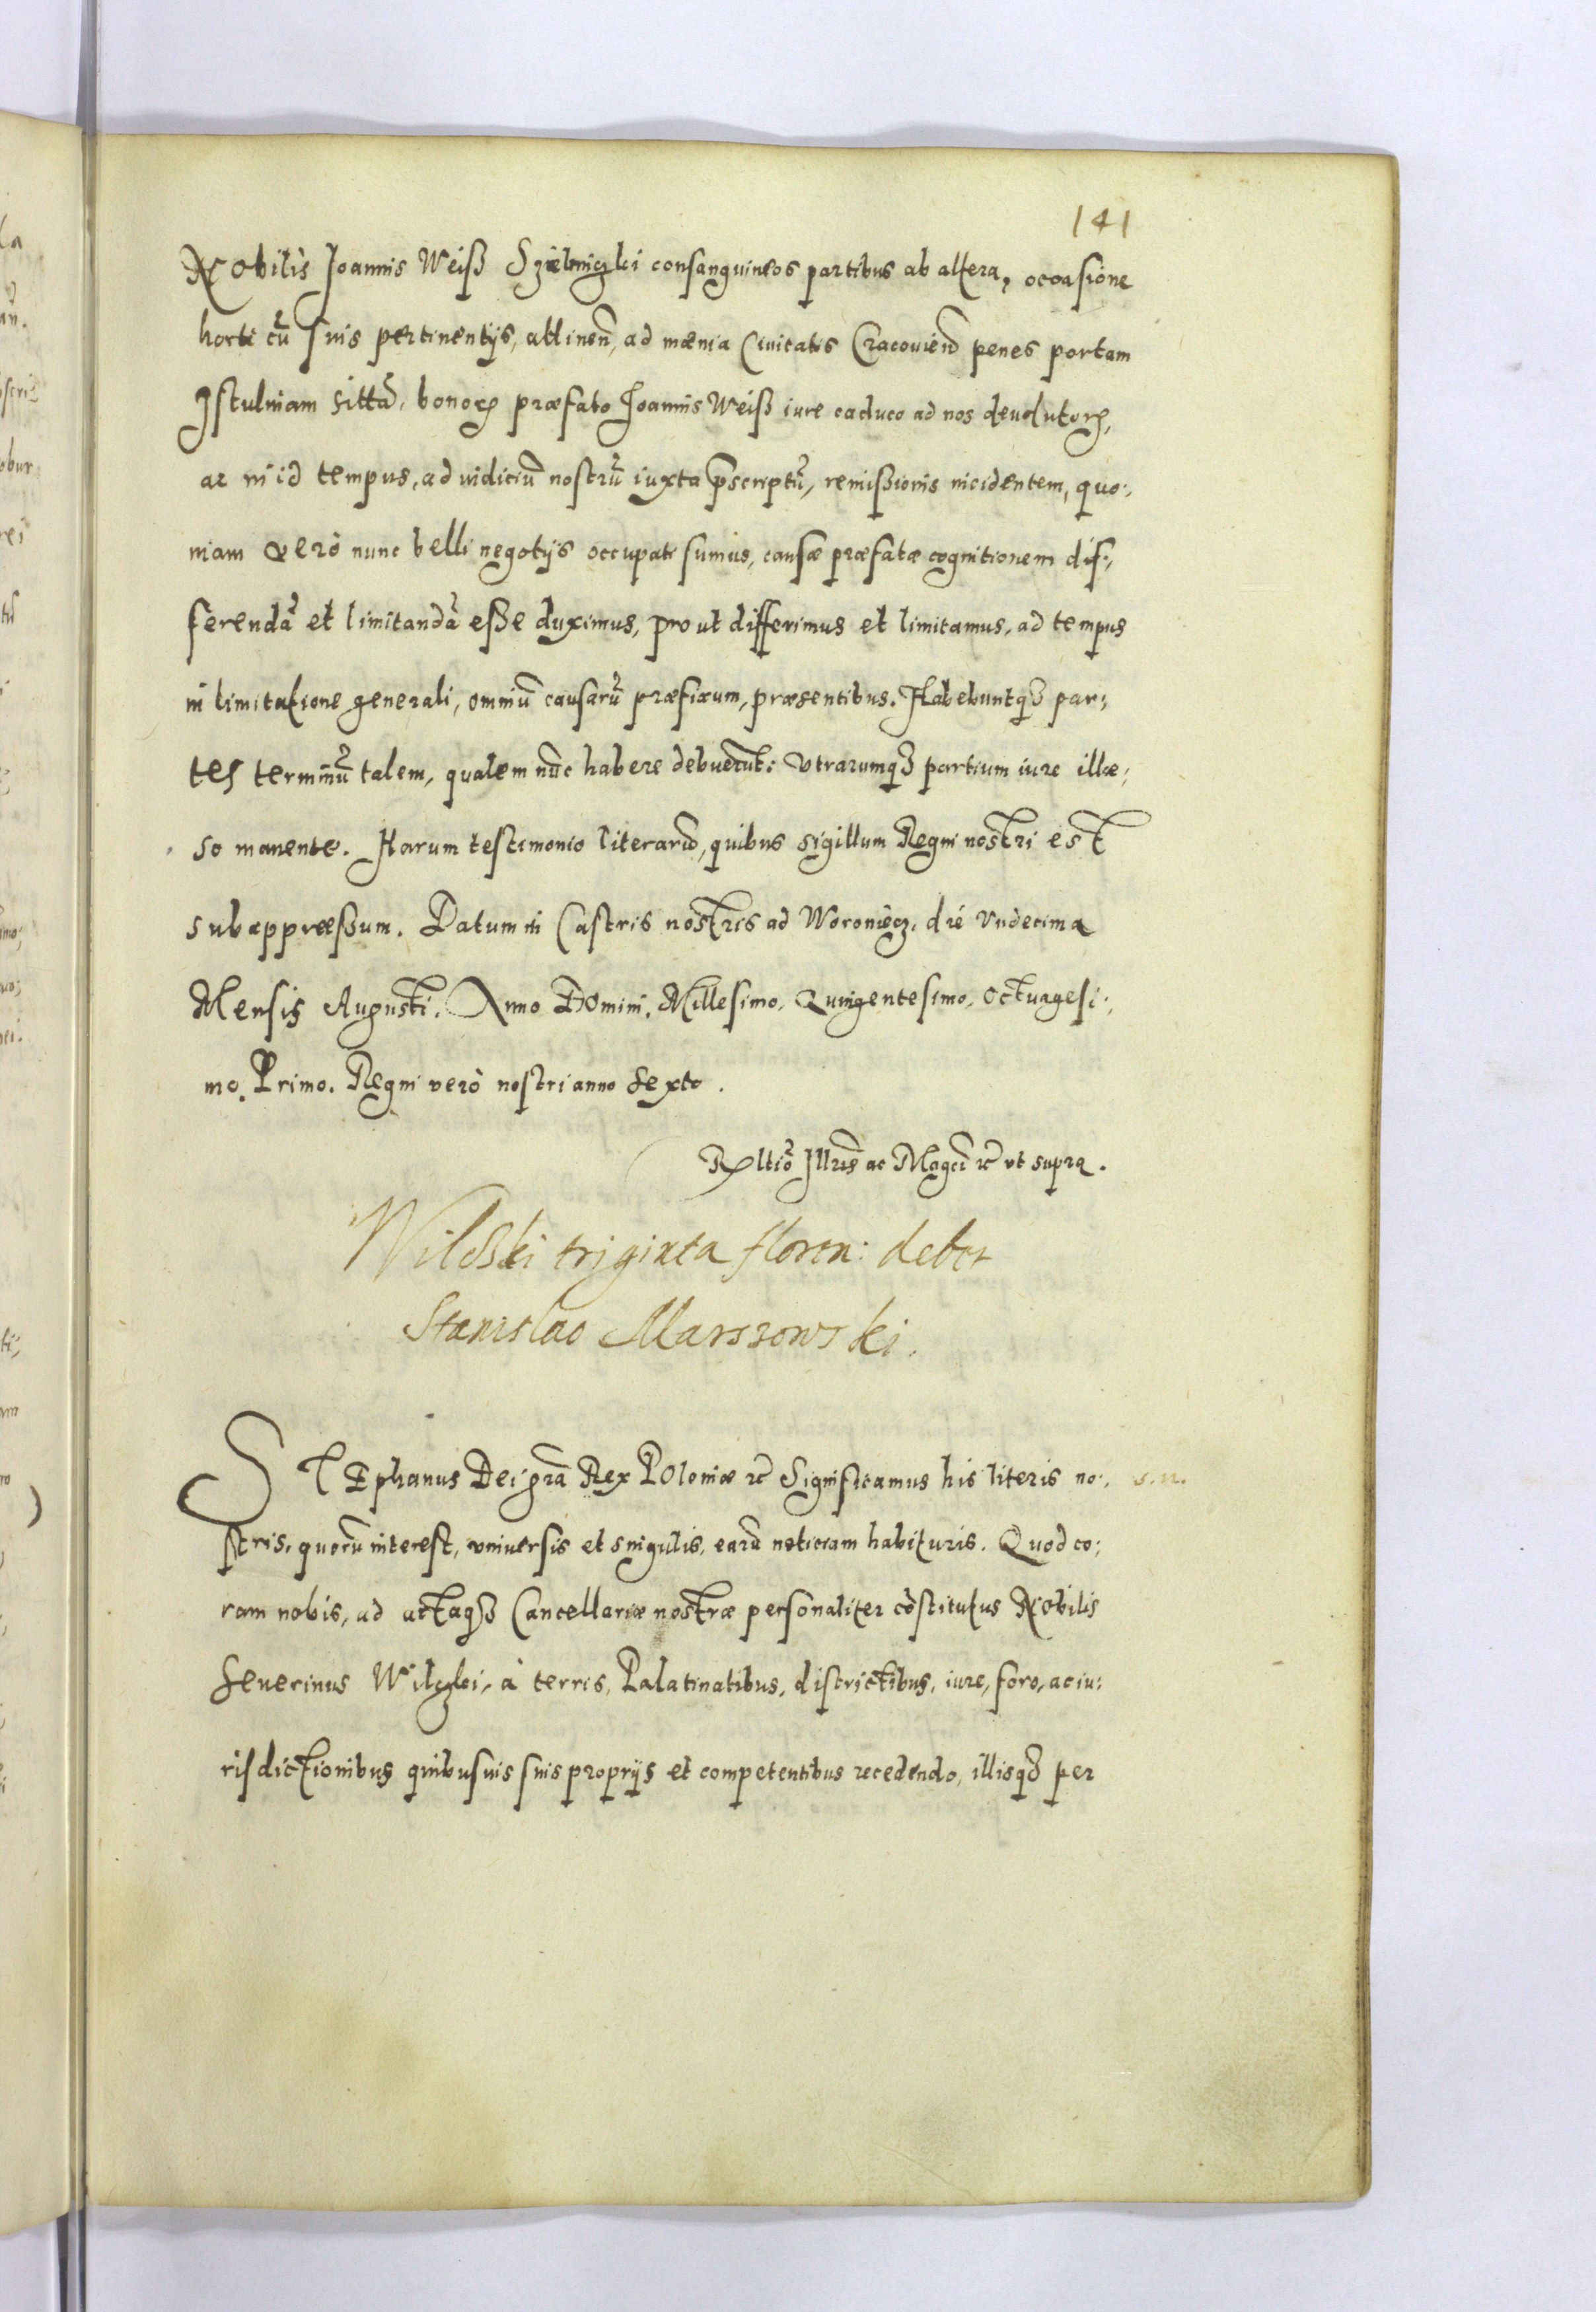 141
Nobilis Joannis Weiß consanguineos partibus ab altera, occasione
horti cũ suis pertinentijs, attinen̄, ad mænia Ciuitatis Cracouien̄ penes portam
Istulniam sittã, bonoꝝ præfato Joannis Weiß iure caduco ad nos deuolutoꝝ,
ac in id tempus, ad iudiciũ nostrũ iuxta p̃scriptũ, remißionis incidentem, quo:,
niam verò nunc belli negotijs occupati sumus, causæ præfatæ cognitionem dif:,
ferendã et limitandã eße duximus, prout differimus et limitamus, ad tempus
in limitatione generali, omniũ causarũ præfixum, præsentibus. Habebuntqȝ par:,
tes terminũ talem, qualem nũc habere debuerũt: Vtrarumqȝ partium iure illæ:,
so manente. Harum testimonio literarũ, quibus sigillum Regni nostri est
subappræßum. Datum in Castris nostris ad Woroniecz, die Vndecima
Mensis Augusti. Anno Domini. Millesimo, Quingentesimo, Octuagesi:,
mo. Primo. Regni verò nostri anno Sexto.
Rltiõ Illris̃ ac Magci ꝛc̃ vt supra.
Wilski triginta floren: debet
Stanislao Marszowski.
STEphanus Dei grã Rex Poloniæ ꝛc̃ Significamus his literis no:, s. n.
stris, quorũ interest, vniuersis et singulis, earũ noticiam habituris. Quod co:,
ram nobis, ad actaqȝ Cancellariæ nostræ personaliter cõstitutus Nobilis
Seuerinus Wilczki, à terris, Palatinatibus, districtibus, iure, foro, ac iu:
risdictionibus quibusuis suis proprijs et competentibus recedendo, illisqȝ per